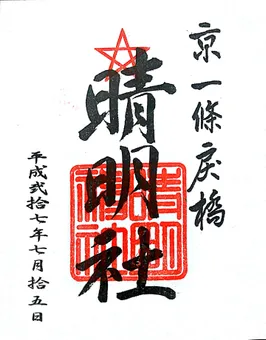 京一條戻橋
晴明社
平成弐拾七年七月拾五日